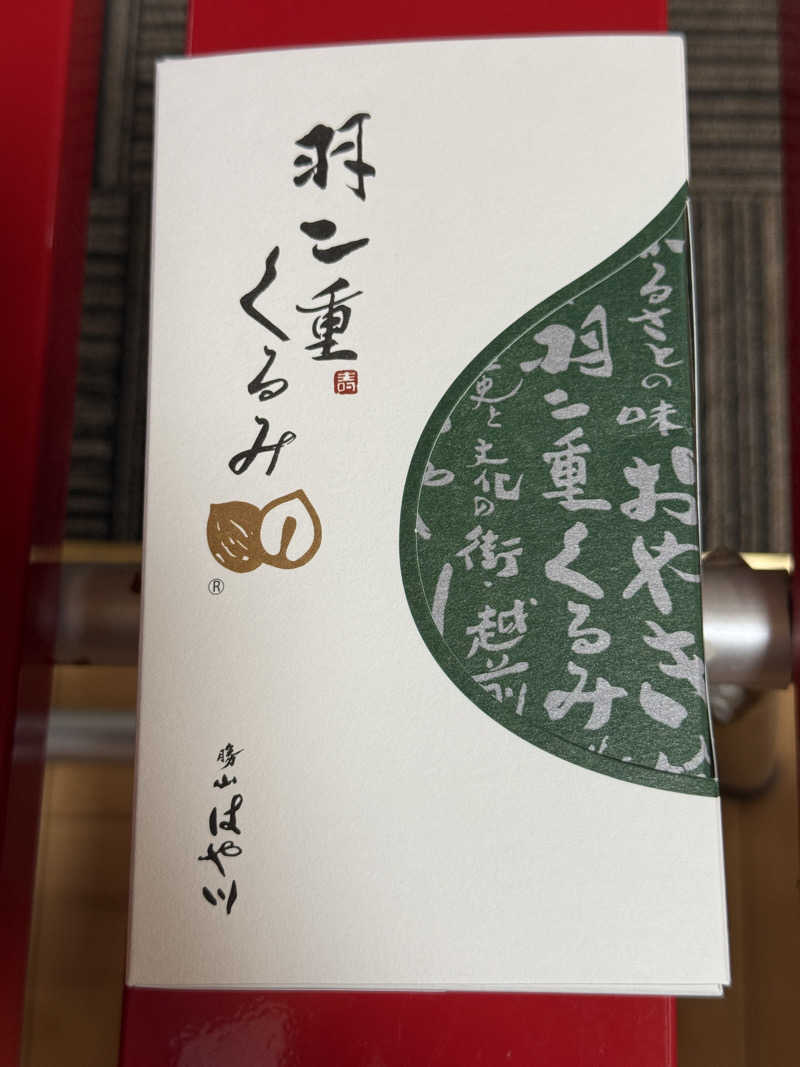 羽二重
くるみ
寿
®
勝山 はや川
ふるさとの味 おやき
羽二重くるみ
史と文化の街・越前